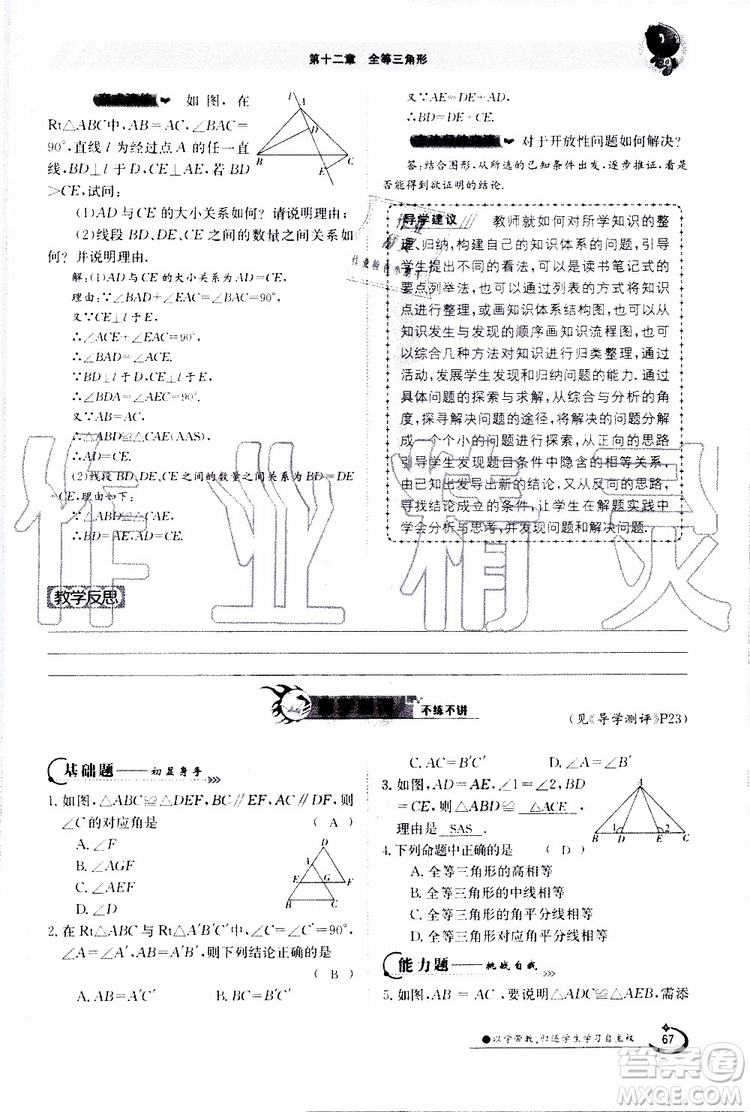 第十二章 全等三角形
如图,在
Rt△ABC中,AB=AC,∠BAC=
90°,直线 l 为经过点 A 的任一直
线,BD⊥l 于 D,CE⊥AE,若 BD
>CE,试问:
(1)AD 与 CE 的大小关系如何?请说明理由:
(2)线段 BD、DE、CE 之间的数量之间关系如
何?并说明理由.
解:(1)AD与CE的大小关系为AD=CE.
理由:∵∠BAD+∠CAE=∠BAC=90°,
又∵CE⊥l于E,
∴∠ACE+∠CAE=90°.
∴∠BAD=∠ACE.
∵BD⊥l于点D,
∴∠BDA=∠AEC=90°.
又∵AB=AC,
∴△ABD≌△CAE(AAS).
∴AD=CE.
(2)线段BD、DE、CE之间的数量之间关系为BD=DE
+CE,理由如下:
∵△ABD≌△CAE,
∴BD=AE,AD=CE.
又∵AE=DE+AD,
∴BD=DE+CE.
对于开放性问题如何解决?
答:结合图形,从所选的已知条件出发,逐步推证,看是
否能得到欲证明的结论.
导学建议 教师就如何对所学知识的整
理、归纳,构建自己的知识体系的问题,引导
学生提出不同的看法,可以是读书笔记式的
要点列举法,也可以以列表的方式将知识
点进行整理,或画知识体系结构图,也可从
知识发生与发现的顺序画知识流程图,也可
以综合几种方法对知识进行归类整理,通过
活动,发展学生发现和归纳问题的能力.通过
具体问题的探索与求解,从综合与分析的角
度,探寻解决问题的途径,将要解决的问题分解
成一个个小的问题进行探索,从正向的思路
引导学生发现题目条件中隐含的相等关系,
由已知出发导出新的结论,又从反向的思路,
寻找结论成立的条件,让学生在解题实践中
学会分析与思考,并发现问题和解决问题.
教学反思
不练不讲
(见《导学测评》P23)
基础题——初显身手
1. 如图,△ABC≌△DEF,BC∥EF,AC∥DF,则
∠C的对应角是 ( A )
A. ∠F
B. ∠AGF
C. ∠AEF
D. ∠D
2. 在 Rt△ABC 与 Rt△A′B′C′中,∠C=∠C′=90°,
∠A=∠B′,AB=A′B′,则下列结论正确的是
( B )
A. AC=A′C′ B. BC=A′C′
C. AC=B′C′ D. ∠A=∠A′
3. 如图,AD=AE,∠1=∠2,BD
=CE,则△ABD≌ △ACE ,
理由是 SAS .
4. 下列命题中正确的是 ( D )
A. 全等三角形的高相等
B. 全等三角形的中线相等
C. 全等三角形的角平分线相等
D. 全等三角形对应角的平分线相等
能力题——挑战自我
5. 如图,AB=AC,要说明△ADC≌△AEB,需添
●以学带教,归还学生学习自主权
67
作业精灵
答案圈